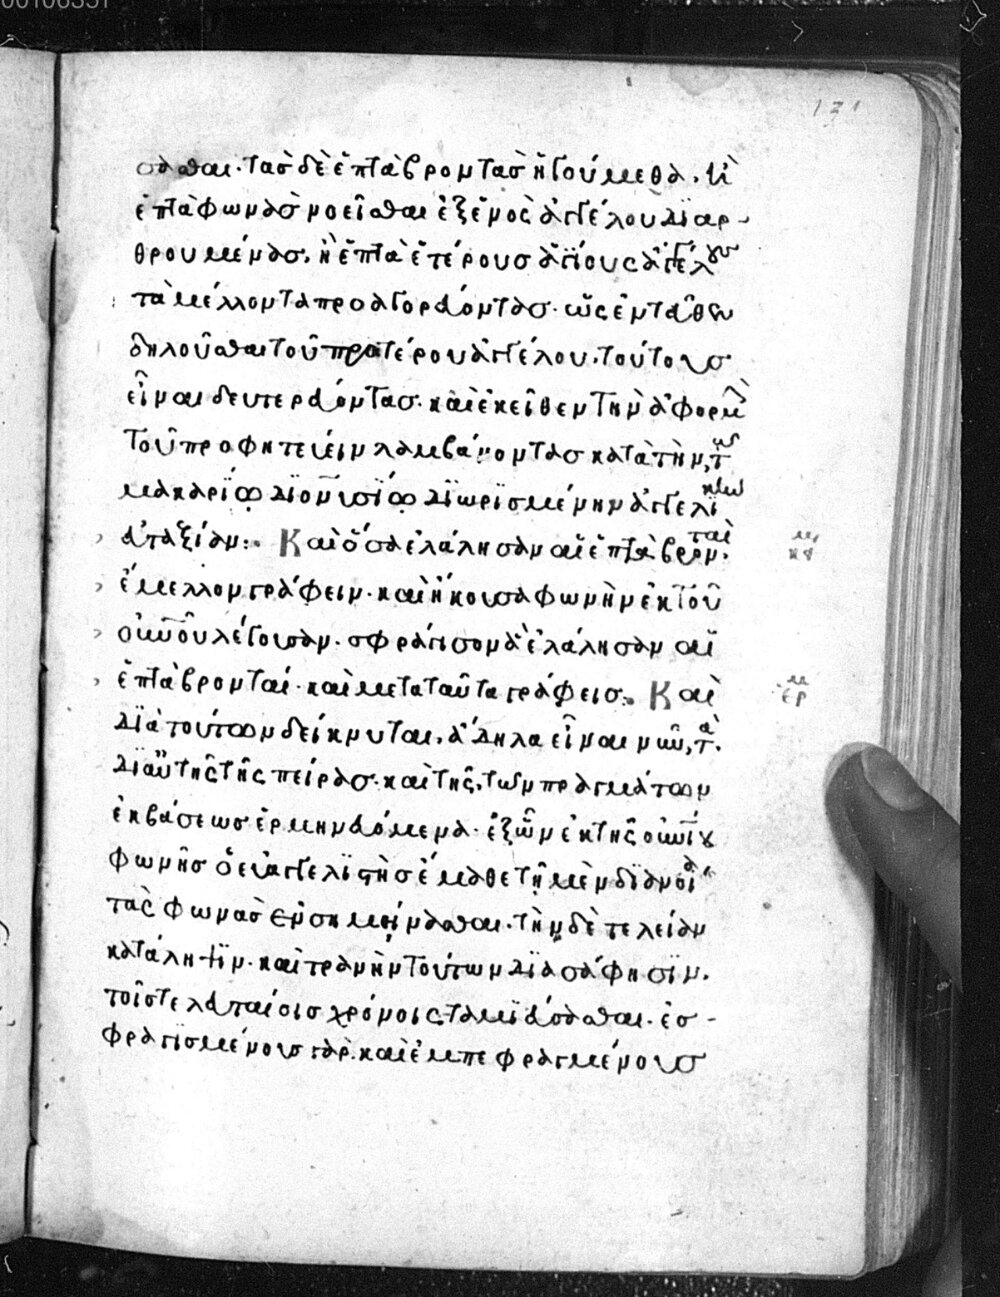 121
σασθαι· τὰς δὲ ἑπτὰ βροντὰς ἡγούμεθα, ἢ
ἑπτὰ φωνὰς νοεῖσθαι ἐξ ἑνὸς ἀγγέλου διαρ-
θρουμένας, ἢ ἑπτὰ ἑτέρους ἁγίους ἀγγέλους
τὰ μέλλοντα προαγορεύοντας· ὡς ἐντεῦθεν
δηλοῦσθαι τοῦ προτέρου ἀγγέλου, τούτους
εἶναι δευτερεύοντας· καὶ ἐκεῖθεν τὴν ἀφορμὴν
τοῦ προφητεύειν λαμβάνοντας κατὰ τὴν, τῷ
μακαρίῳ διονυσίῳ διωρισμένην ἀγγελικὴν
εὐταξίαν:· Καὶ ὅσα ἐλάλησαν αἱ ἑπτὰ βρονταὶ,
ἔμελλον γράφειν· καὶ ἤκουσα φωνὴν ἐκ τοῦ
οὐνοῦ λέγουσαν· σφράγισον ἃ ἐλάλησαν αἱ
ἑπτὰ βρονταί· καὶ μετὰ ταῦτα γράφεις:· Καὶ
διὰ τούτων δείκνυται, ἄδηλα εἶναι νῦν, τὰ,
δι αὐτῆς τῆς πείρας· καὶ τῆς, τῶν πραγμάτων
ἐκβάσεως ἑρμηνευόμενα· ἐξ ὧν ἐκ τῆς οὐνίου
φωνῆς ὁ εὐαγγελιστὴς ἔμαθε τῇ μὲν διανοίᾳ
τὰς φωνὰς ἐνσημῄνασθαι· τὴν δὲ τελείαν
κατάληψιν· καὶ τρανὴν τούτων διασάφησιν,
τοῖς τελευταίοις χρόνοις ταμιεύσασθαι· ἐσ-
φραγισμένους γὰρ· καὶ ἐμπεφραγμένους
κμ
ερμ